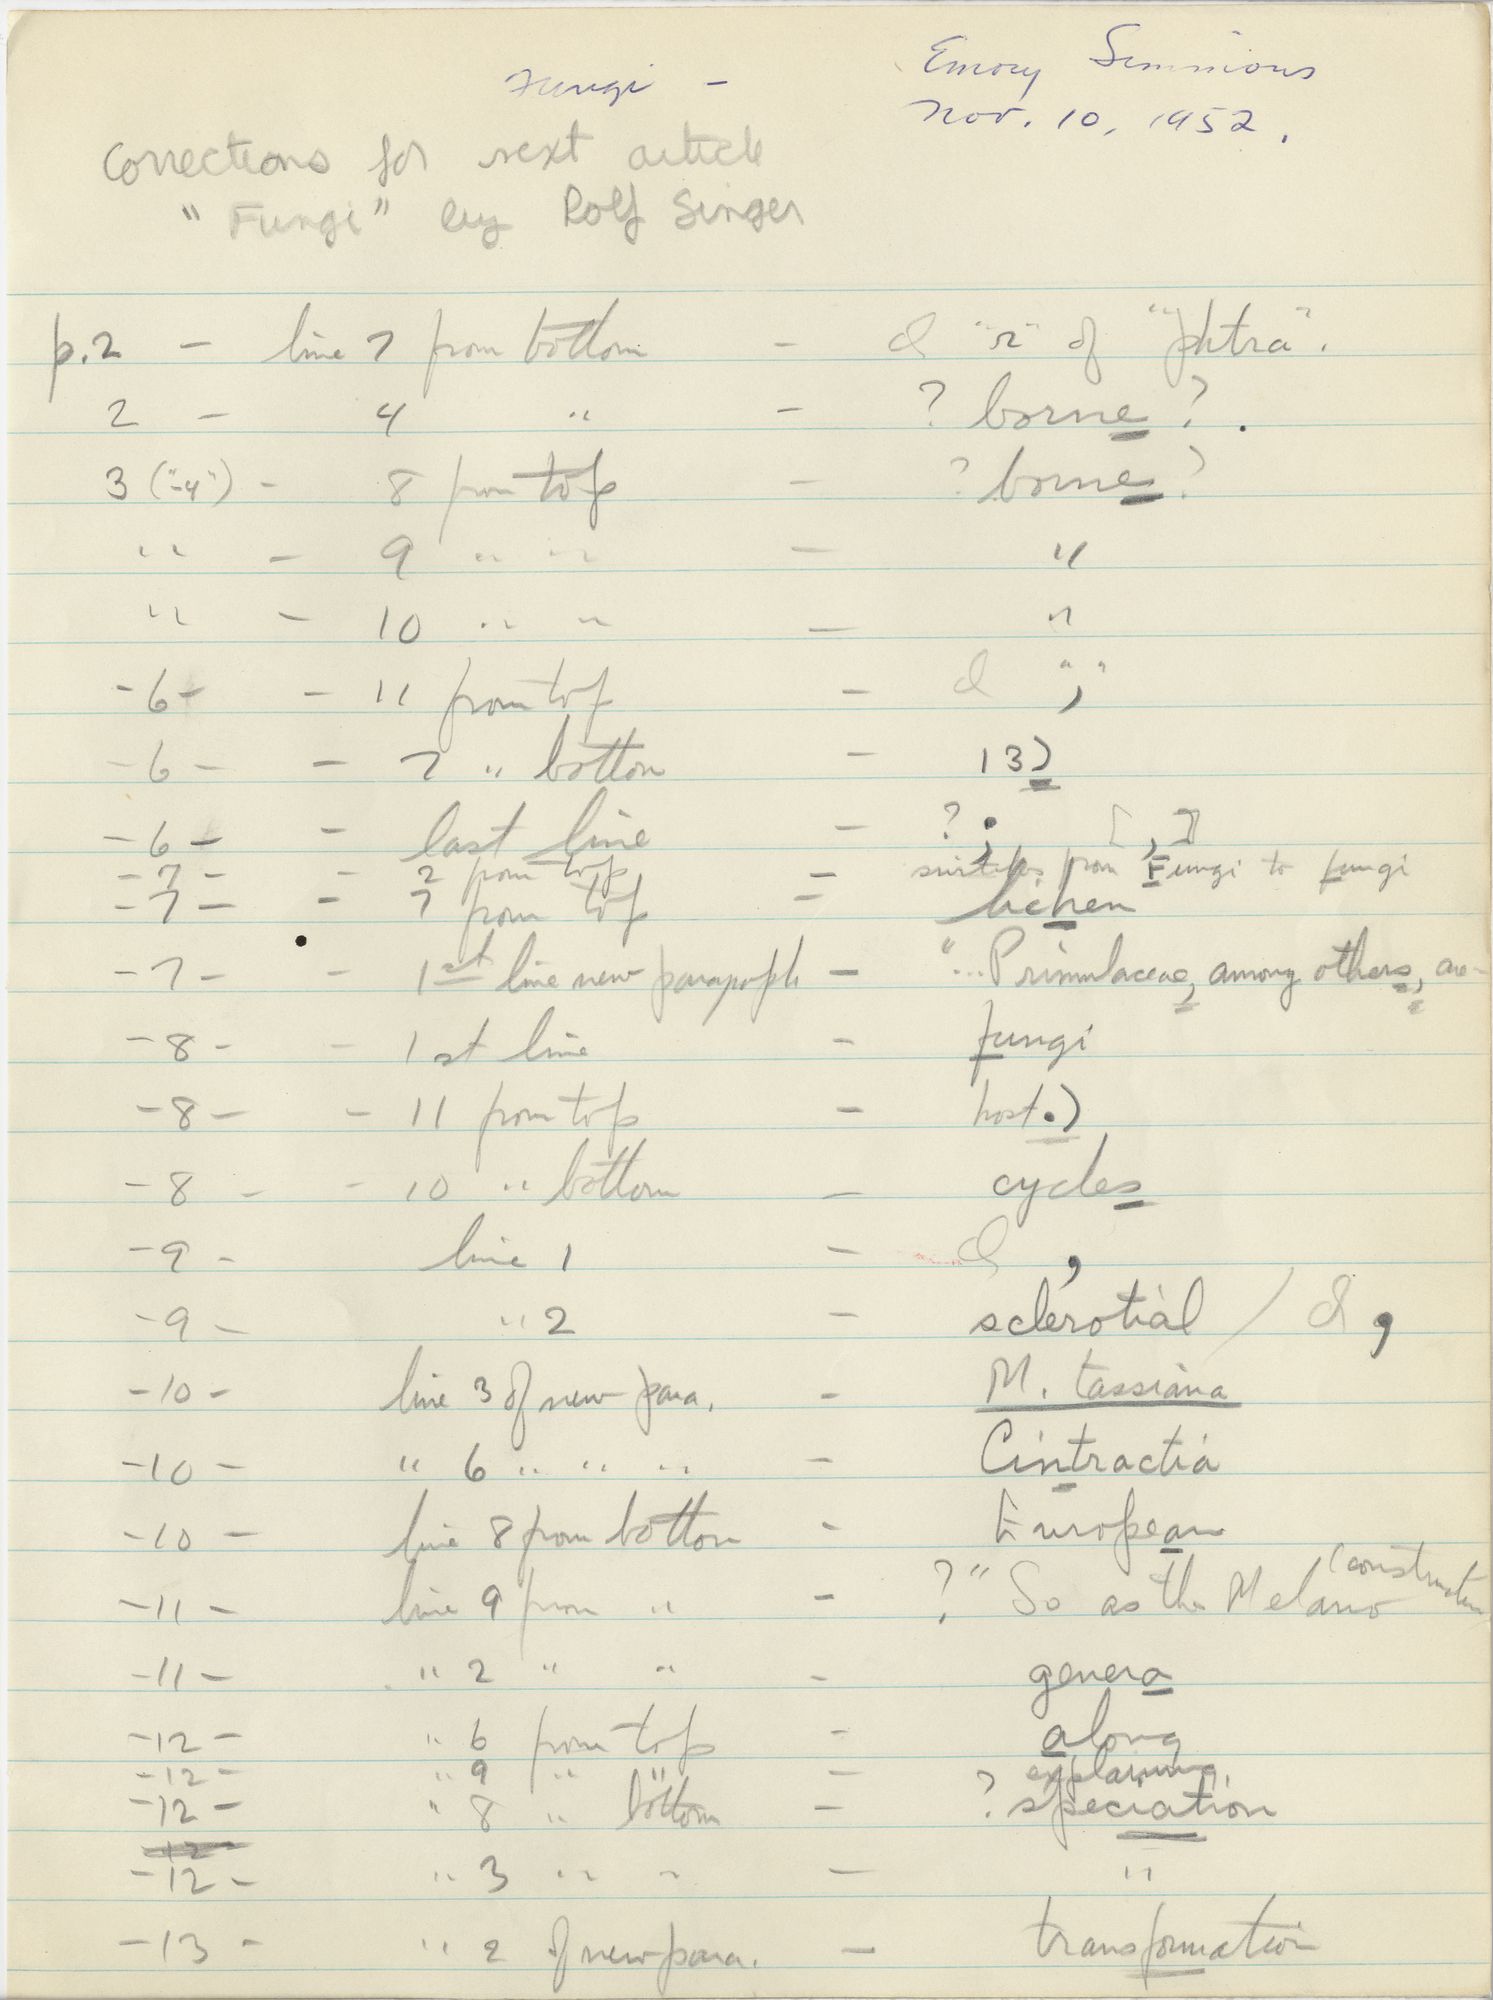 Fungi -
Emory Simmons
Nov. 10, 1952.
Corrections for next article
"Fungi" by Rolf Singer
p.2 - line 7 from bottom - "r" of "phtra".
2 - 4 " - ? borne ? .
3 ("-4") - 8 from top - ? borne ?
" - 9 " " - "
" - 10 " " - "
-6- - 11 from top - " , "
-6- - 7 " bottom - 13)
-6- - last line - ? ; [ , ]
-7- - 2 from top - from Fungi to fungi
-7- - 7 from top - lichen
-7- - 1st line new paragraph - "... Primulaceae, among others, are
-8- - 1st line - fungi
-8- - 11 from top - host.)
-8- - 10 " bottom - cycles
-9- line 1 - ,
-9- " 2 - sclerotial / ,
-10- line 3 of new para. - M. tassiana
-10- " 6 " " " - Cintractia
-10- line 8 from bottom - European
-11- line 9 from " - ? " So as the Melano (construction
-11- " 2 " " - genera
-12- " 6 from top - along
-12- " 9 " " - explaining
-12- " 8 " bottom - ? speciation
-12- " 3 " " - "
-13- " 2 of new para. - transformation